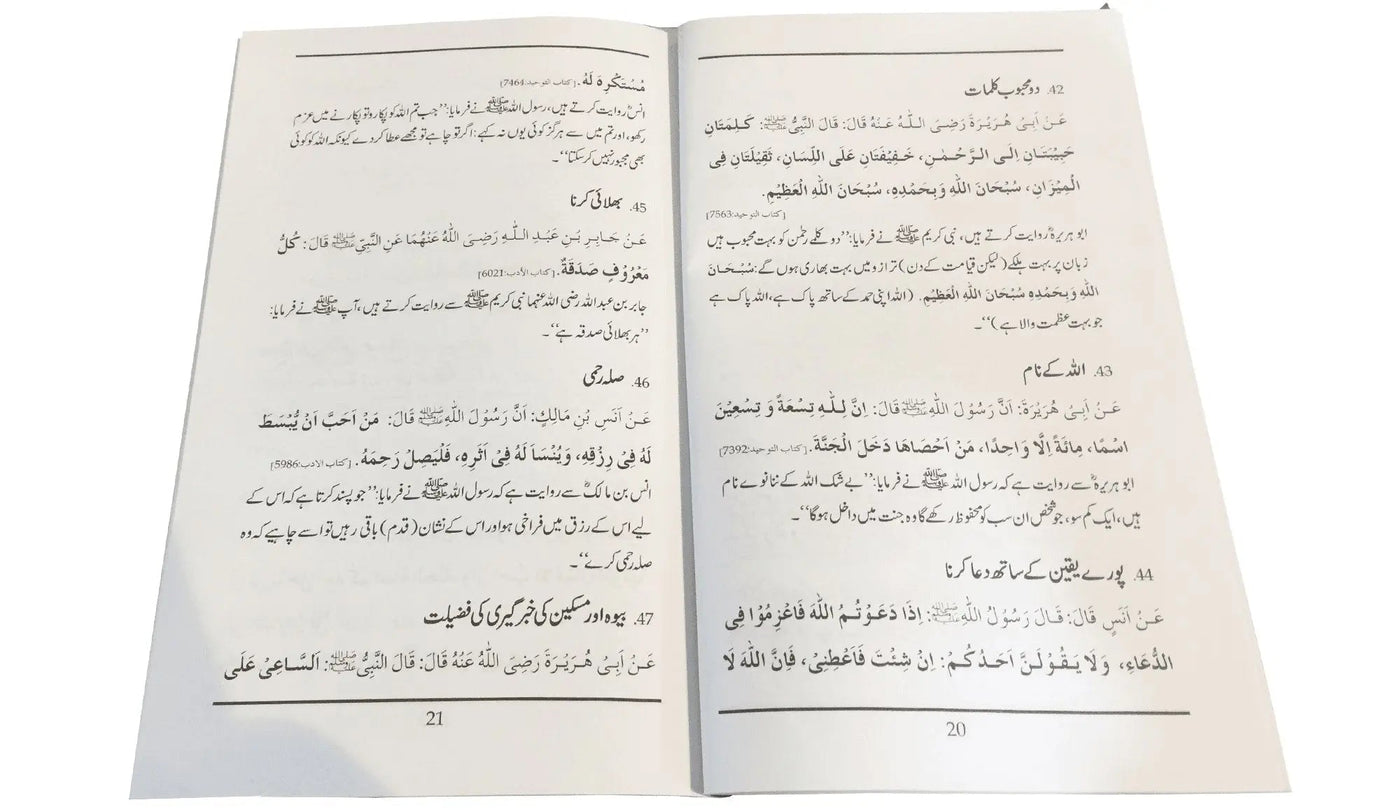 42. دو محبوب کلمات
عَنْ اَبِیْ هُرَیْرَةَ رَضِیَ اللّٰہُ عَنْهُ قَالَ: قَالَ النَّبِیُّ ﷺ: کَلِمَتَانِ
حَبِیْبَتَانِ اِلَی الرَّحْمٰنِ، خَفِیْفَتَانِ عَلَی اللِّسَانِ، ثَقِیْلَتَانِ فِی
الْمِیْزَانِ، سُبْحَانَ اللّٰهِ وَبِحَمْدِهِ، سُبْحَانَ اللّٰهِ الْعَظِیْمِ.
[کتاب التوحید:7563]
ابو ہریرہؓ روایت کرتے ہیں، نبی کریم ﷺ نے فرمایا: ’’دو کلمے رحمٰن کو بہت محبوب ہیں
زبان پر بہت ہلکے (لیکن قیامت کے دن) ترازو میں بہت بھاری ہوں گے: سُبْحَانَ
اللّٰهِ وَبِحَمْدِهِ سُبْحَانَ اللّٰهِ الْعَظِیْمِ. (اللہ اپنی حمد کے ساتھ پاک ہے، اللہ پاک ہے
جو بہت عظمت والا ہے)‘‘۔
43. اللہ کے نام
عَنْ اَبِیْ هُرَیْرَةَ: اَنَّ رَسُوْلَ اللّٰهِ ﷺ قَالَ: اِنَّ لِلّٰهِ تِسْعَةً وَّ تِسْعِیْنَ
اسْمًا، مِائَةً اِلَّا وَاحِدًا، مَنْ اَحْصَاهَا دَخَلَ الْجَنَّةَ. [کتاب التوحید:7392]
ابو ہریرہؓ سے روایت ہے کہ رسول اللہ ﷺ نے فرمایا: ’’بے شک اللہ کے ننانوے نام
ہیں، ایک کم سو، جو شخص ان سب کو محفوظ رکھے گا وہ جنت میں داخل ہوگا‘‘۔
44. پورے یقین کے ساتھ دعا کرنا
عَنْ اَنَسٍ قَالَ: قَالَ رَسُوْلُ اللّٰهِ ﷺ: اِذَا دَعَوْتُمُ اللّٰهَ فَاعْزِمُوْا فِی
الدُّعَاءِ، وَلَا یَقُوْلَنَّ اَحَدُکُمْ: اِنْ شِئْتَ فَاَعْطِنِیْ، فَاِنَّ اللّٰهَ لَا
20
مُسْتَکْرِهَ لَهُ. [کتاب التوحید:7464]
انسؓ روایت کرتے ہیں، رسول اللہ ﷺ نے فرمایا: ’’جب تم اللہ کو پکارو تو پکارنے میں عزم
رکھو، اور تم میں سے ہرگز کوئی یوں نہ کہے: اگر تو چاہے تو مجھے عطا کر دے کیونکہ اللہ کو کوئی
بھی مجبور نہیں کر سکتا‘‘۔
45. بھلائی کرنا
عَنْ جَابِرِ بْنِ عَبْدِ اللّٰهِ رَضِیَ اللّٰهُ عَنْهُمَا عَنِ النَّبِیِّ ﷺ قَالَ: کُلُّ
مَعْرُوْفٍ صَدَقَةٌ. [کتاب الأدب:6021]
جابر بن عبد اللہ رضی اللہ عنہما نبی کریم ﷺ سے روایت کرتے ہیں، آپ ﷺ نے فرمایا:
’’ہر بھلائی صدقہ ہے‘‘۔
46. صلہ رحمی
عَنْ اَنَسِ بْنِ مَالِکٍ: اَنَّ رَسُوْلَ اللّٰهِ ﷺ قَالَ: مَنْ اَحَبَّ اَنْ یُّبْسَطَ
لَهُ فِیْ رِزْقِهِ، وَیُنْسَاَ لَهُ فِیْ اَثَرِهِ، فَلْیَصِلْ رَحِمَهُ. [کتاب الادب:5986]
انس بن مالکؓ سے روایت ہے کہ رسول اللہ ﷺ نے فرمایا: ’’جو پسند کرتا ہے کہ اس کے
لیے اس کے رزق میں فراخی ہو اور اس کے نشان (قدم) باقی رہیں تو اسے چاہیے کہ وہ
صلہ رحمی کرے‘‘۔
47. بیوہ اور مسکین کی خبر گیری کی فضیلت
عَنْ اَبِیْ هُرَیْرَةَ رَضِیَ اللّٰهُ عَنْهُ قَالَ: قَالَ النَّبِیُّ ﷺ: اَلسَّاعِیْ عَلَی
21